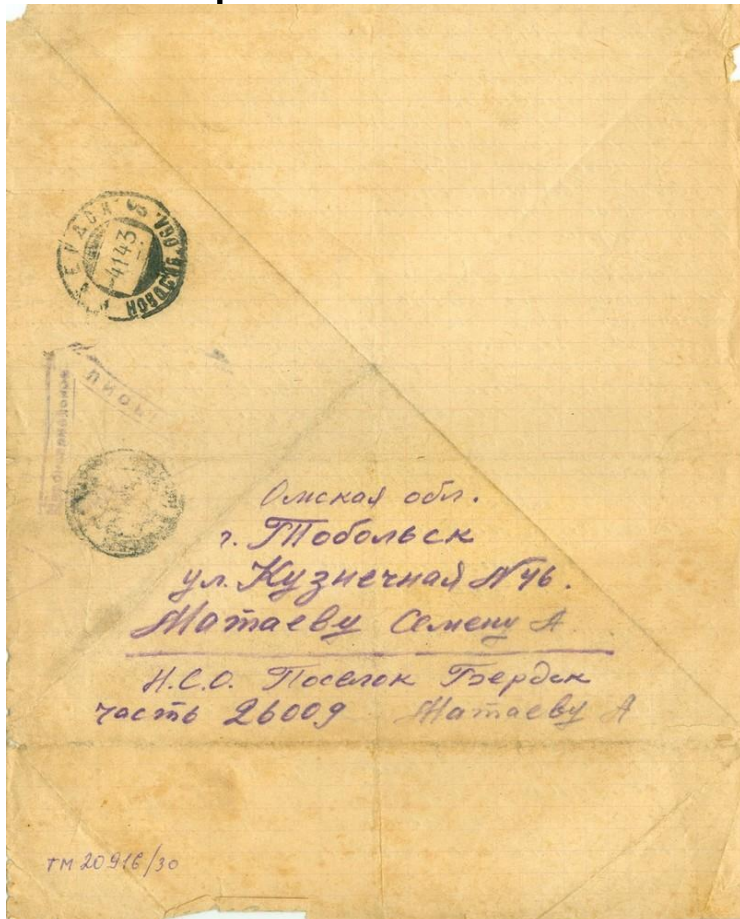 4 1 43
НОВОСИБ. ОБЛ.
Омская обл.
г. Тобольск
ул. Кузнечная № 46.
Матаеву Семену А
Н.С.О. Поселок Бердск
часть 26009 Матаеву А
ТМ 20916/30